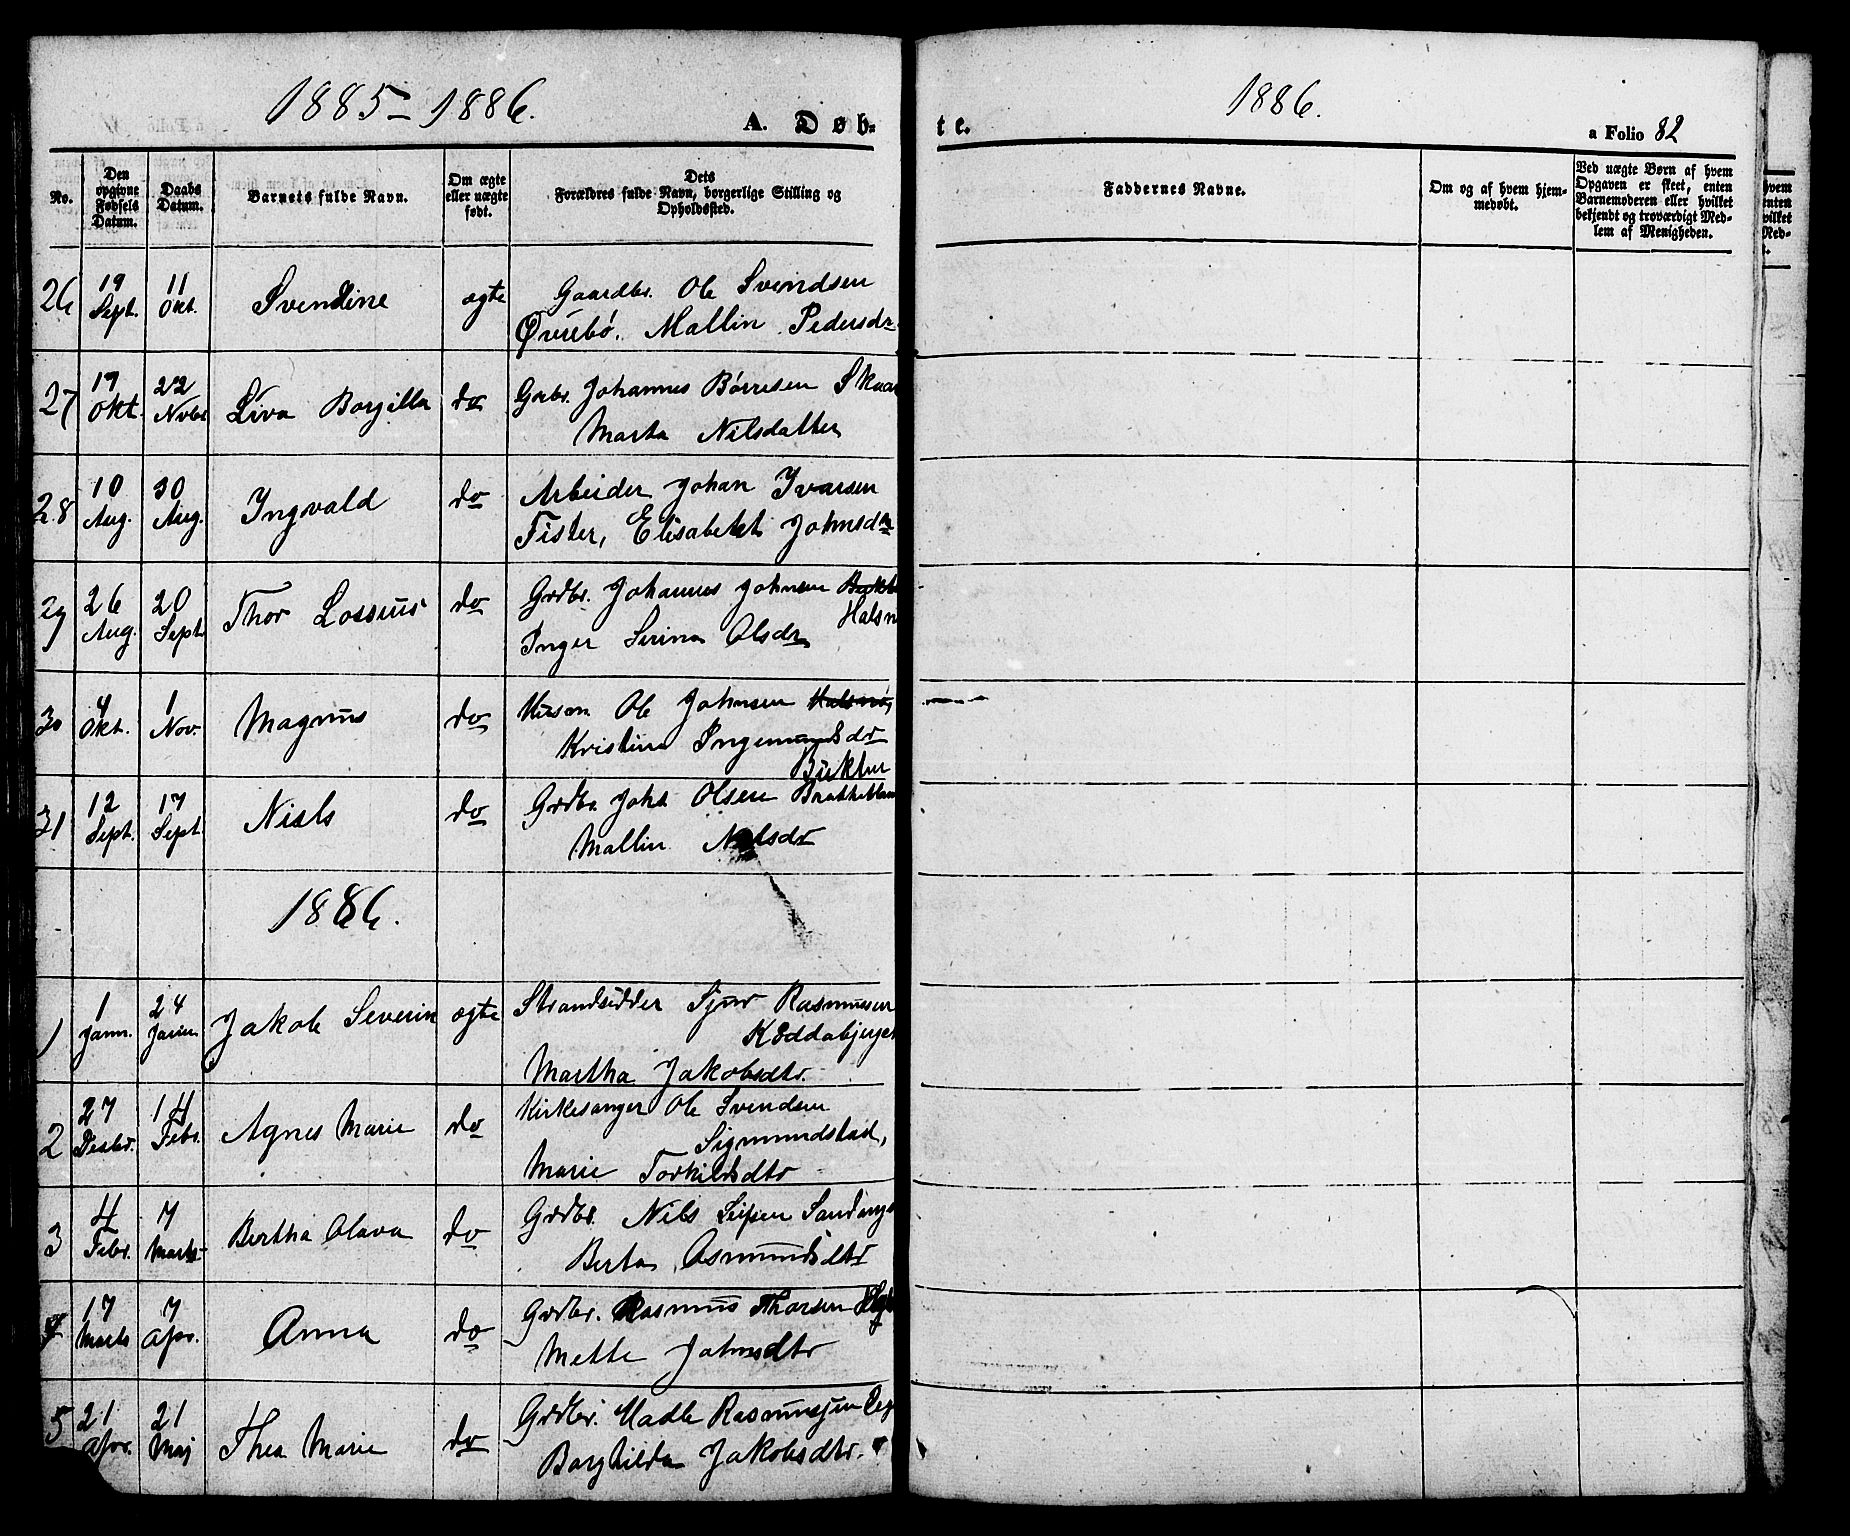 1885-1886.
A. Døb-
No.
Den opgivne Fødsels Datum.
Daabs Datum.
Barnets fulde Navn.
Om ægte eller uægte født.
Dets Forældres fulde Navn, borgerlige Stilling og Opholdssted.
26 19 Sept. 11 Okt. Svendine ægte Gaardbr. Ole Svendsen
Øvrebø. Mallin Pedersdr
27 Okt. 22 Novbr Liva Borgilla do Grbr. Johannes Børresen Skaar
Marta Nilsdatter
28 10 Aug. 30 Aug. Ingvald do Arbeider Johan Ivarsen
Fister, Elisabeth Johnsdr
29 26 Aug. 20 Sept. Thor Lossius do Grdbr. Johannes Johnsen
Halsn
Inger Serina Olsdr
30 4 Okt. 1 Nov. Magnus do Husm Ole Johnsen Halsnø,
Kristine Ingemundsdr
31 12 Sept. 17 Sept. Niels do Grdbr Olsen
Mallin Nilsdr
1886.
1 1 Janr. 24 Janr. Jakob Severin ægte Strandsidder Sjur Rasmussen
Martha Jakobsdtr.
2 27 Decbr. 14 Febr. Agnes Marie do Kirkesanger Ole Svendsen
Sigmundstad,
Marie Torkildsdtr
3 4 Febr. 7 Marts Bertha Olava do Grdbr. Nils
Berta Asmundsdtr
4 17 Marts 7 Apr. Anna do Grdbr. Rasmus Thorsen
Mette Johnsdtr
5 21 Apr. 21 Maj Thea Marie do Grdbr.
Borghilda Jakobsdtr.
1886.
te.
a Folio 82
Faddernes Navne.
Om og af hvem hjem-
medøbt.
Ved uægte Børn af hvem
Opgaven er skeet, enten
Barnemoderen eller hvilket
bekjendt og troværdigt Med-
lem af Menigheden.
hvem
enten
vilket
Med-